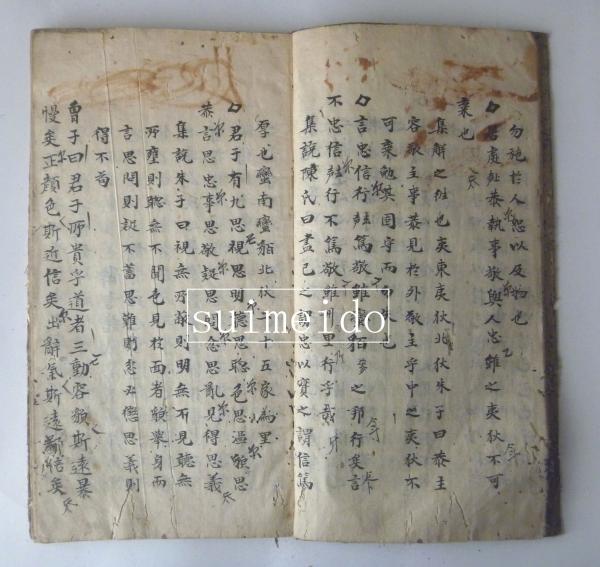 勿施於人恕以及物也
居處恭執事敬與人忠雖之夷狄不可
棄也
集解之往也夷東夷狄北狄朱子曰恭主
容敬主事恭見於外敬主乎中之夷狄不
可棄勉其固守而失也
言忠信行篤敬雖貊之邦行矣言
不忠信行不篤敬雖州里行乎哉
集說陳氏曰盡己之謂忠以實之謂信篤
厚也蠻南蠻貊北狄二十五家為里
君子有九思視思明聽思聰色思溫貌思
恭言思忠事思敬疑思忿思見得思義
集說朱子曰視無所蔽則明無不見聽無
所壅則聰無不聞色見於面者貌舉身而
言思問則疑不蓄思難則忿必懲思義則
得不苟
曾子曰君子所貴乎道者三動容貌斯遠暴
慢矣正顏色斯近信矣出辭氣斯遠鄙倍矣
suimeido